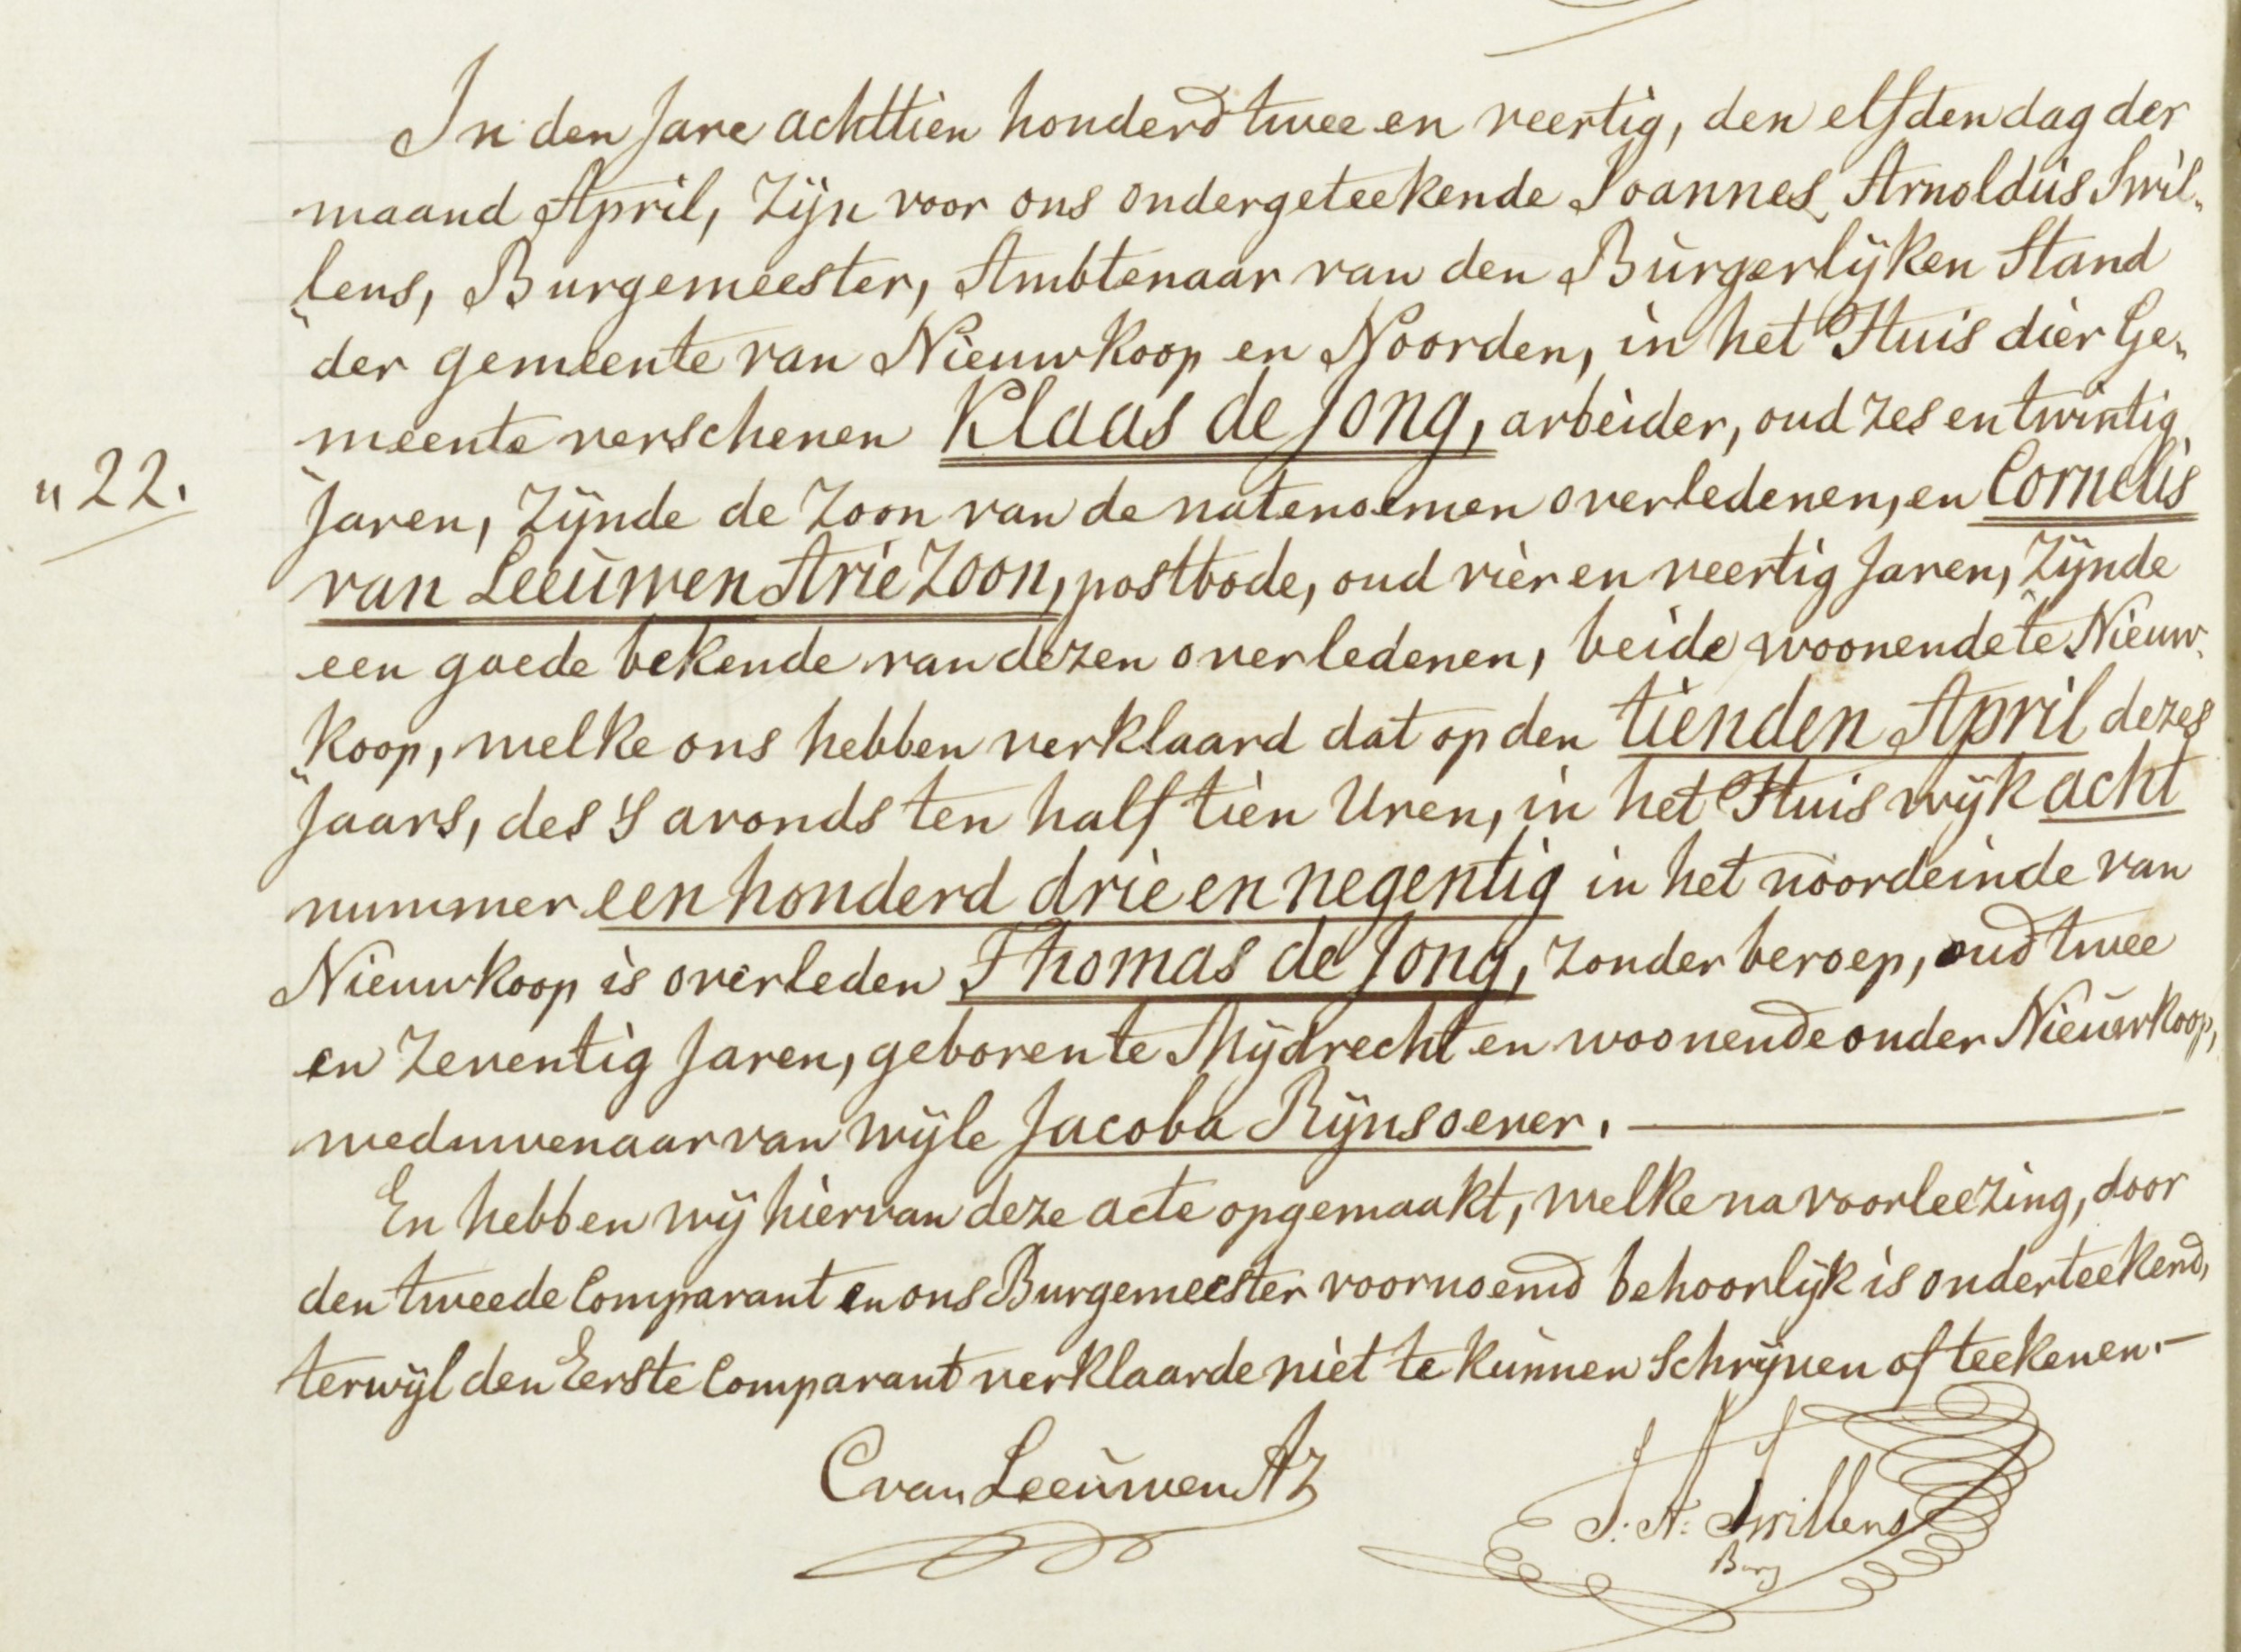 In den Jare achttien honderd twee en veertig, den elfden dag der
maand April, Zijn voor ons ondergeteekende Joannes Arnoldus Swil„
„lens, Burgemeester, Ambtenaar van den Burgerlijken Stand
der gemeente van Nieuwkoop en Noorden, in het Huis dier Ge„
„meente verschenen Klaas de Jong, arbeider, oud zes en twintig
Jaren, Zijnde de Zoon van de natenoemen overledenen, en Cornelis
„22.
van Leeuwen Arie Zoon, postbode, oud vier en veertig Jaren, Zijnde
een goede bekende van dezen overledenen, beide woonende te Nieuw„
„koop, welke ons hebben verklaard dat op den tienden April dezes
Jaars, des S avonds ten half tien Uren, in het Huis wijk acht
nummer een honderd drie en negentig in het noordeinde van
Nieuwkoop is overleden Thomas de Jong, Zonder beroep, oud twee
en Zeventig Jaren, geboren te Mijdrecht en woonende onder Nieuwkoop,
weduwenaar van wijle Jacoba Rijnsoever.
En hebben wij hiervan deze acte opgemaakt, welke na voorleezing, door
den tweede Comparant en ons Burgemeester voornoemd behoorlijk is onderteekend,
terwijl den Eerste Comparant verklaarde niet te kunnen Schrijven of teekenen.—
C van Leeuwen AZ
J. A: Swillens
Burg